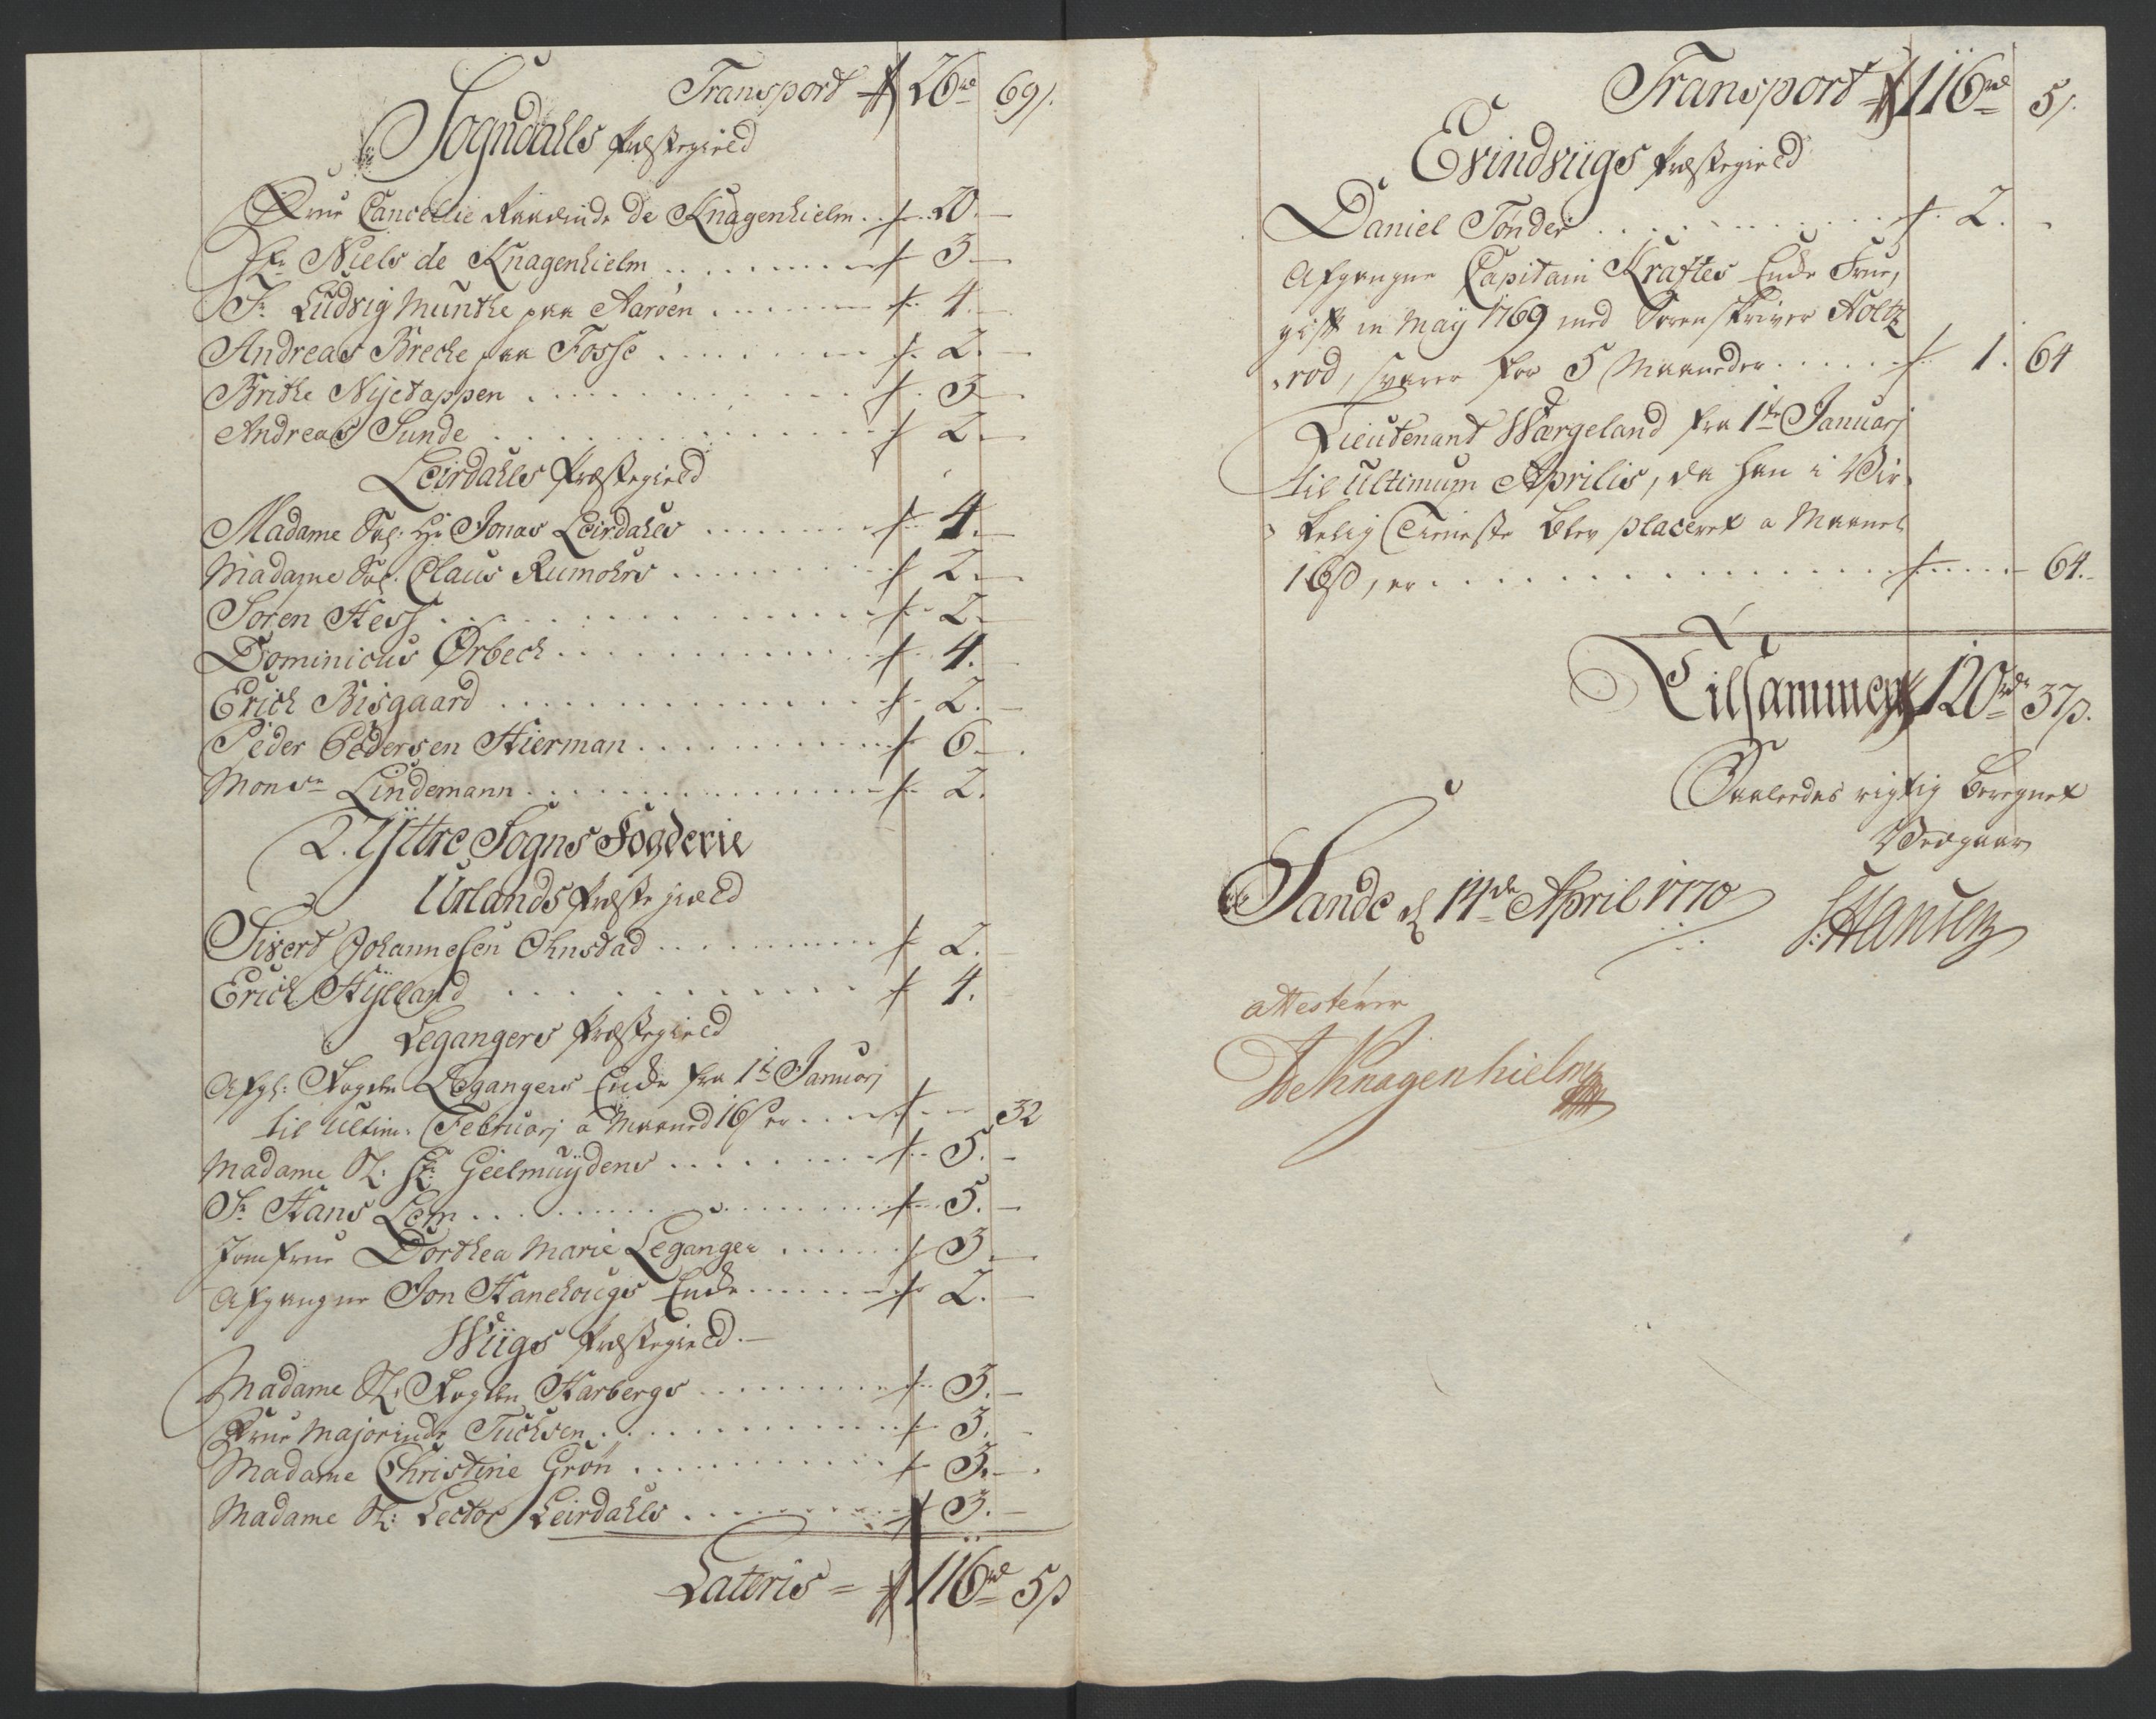 Transport 26 rd 69 s.
Sogndahls Præstegield
Frue Cancellie Raadinde de Knagenhielm . . 20. —
Hr. Niels de Knagenhielm . . . . . . . . 3. —
Sr. Ludvig Munthe paa Aarøen . . . . . . 4. —
Andreas Breche paa Fosse . . . . . . . . 2. —
Brithe Nijetappen . . . . . . . . . . 3. —
Andreas Sunde . . . . . . . . . . 2. —
Leirdahls Præstegield
Madame Sal. Hr. Jonas Leirdahls . . . . . . . 4. —
Madame Sal. Claus Rumohrs . . . . . . . . 2. —
Soren Hess . . . . . . . . . . . . 2. —
Dominicus Ørbech . . . . . . . . . . . 4. —
Erich Bisgaard . . . . . . . . . . . . 2. —
Peder Pedersen Hierman . . . . . . . . . . 6. —
Monsr. Lindemann . . . . . . . . . . . . 2.
2. Yttre Sogns Fogderie
Urlands Præstegield
Sivert Johannesen Ohnstad . . . . . . . . 2. —
Erich Hylland . . . . . . . . . . 4.
Legangers Præstegield
Afgl: Fogden Legangers Encke fra 1te Januarj
til Ultim: Februarj a Maaned 16 s er . . . . 32
Madame Sl: Hr: Geelmuÿdens . . . . . . . . 5. —
Sr. Hans Lem . . . . . . . . . . . . . 5. —
Jomfrue Dorthea Marie Leganger . . . . . . 3. —
Afgangne Jon Hanehougs Encke . . . . . . . 2. —
Wiigs Præstegield. —
Madame Sl: Fogden Harbergs . . . . . . . . 3. —
Frue Majorinde Tuchsen . . . . . . . . . . 3. —
Madame Christine Grön . . . . . . . . . . 3. —
Madame Sl: Lector Leirdahls . . . . . . . . 3. —
Lateris = 116 rd 5 s
Transport 116 rd 5 s.
Evindviigs Præstegield
Daniel Tønder . . . . . . . . . . . 2. —
Afgangne Capitain Kraftes Encke Frue,
gift in Maÿ 1769 med Sorenskriver Holtz
rod, svarer for 5 Maaneder . . . . . . 1. 64
Lieutenant Wærgeland fra 1te Januarj
til Ultimum Aprilis, da han i Vir-
kelig Tieneste blev placeret a Maanet
16 s, er . . . . . . . . . . . . . . . . 64. —
Tilsammen 120 rd 37 s.
Saaledes rigtig beregnet
Vedgaar
Sande d 14de April 1770
Hansen
attesterer
De Knagenhielm